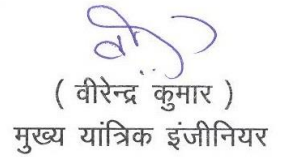 ( वीरेन्द्र कुमार )
मुख्य यांत्रिक इंजीनियर